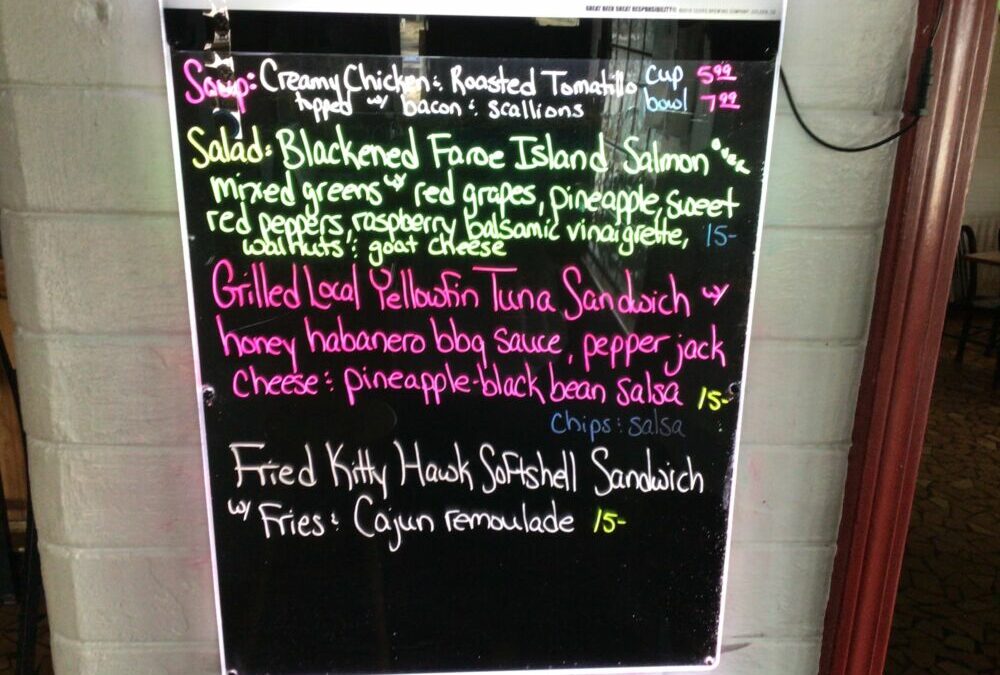 GREAT BEER GREAT RESPONSIBILITY®
Soup: Creamy Chicken : Roasted Tomatillo cup 5.99
topped w/ bacon : scallions bowl 7.99
Salad: Blackened Faroe Island Salmon over
mixed greens w/ red grapes, pineapple, sweet
red peppers, raspberry balsamic vinaigrette, 15-
walnuts : goat cheese
Grilled Local Yellowfin Tuna Sandwich w/
honey habanero bbq sauce, pepper jack
cheese : pineapple-black bean salsa 15-
chips : salsa
Fried Kitty Hawk Softshell Sandwich
w/ Fries : Cajun remoulade 15-